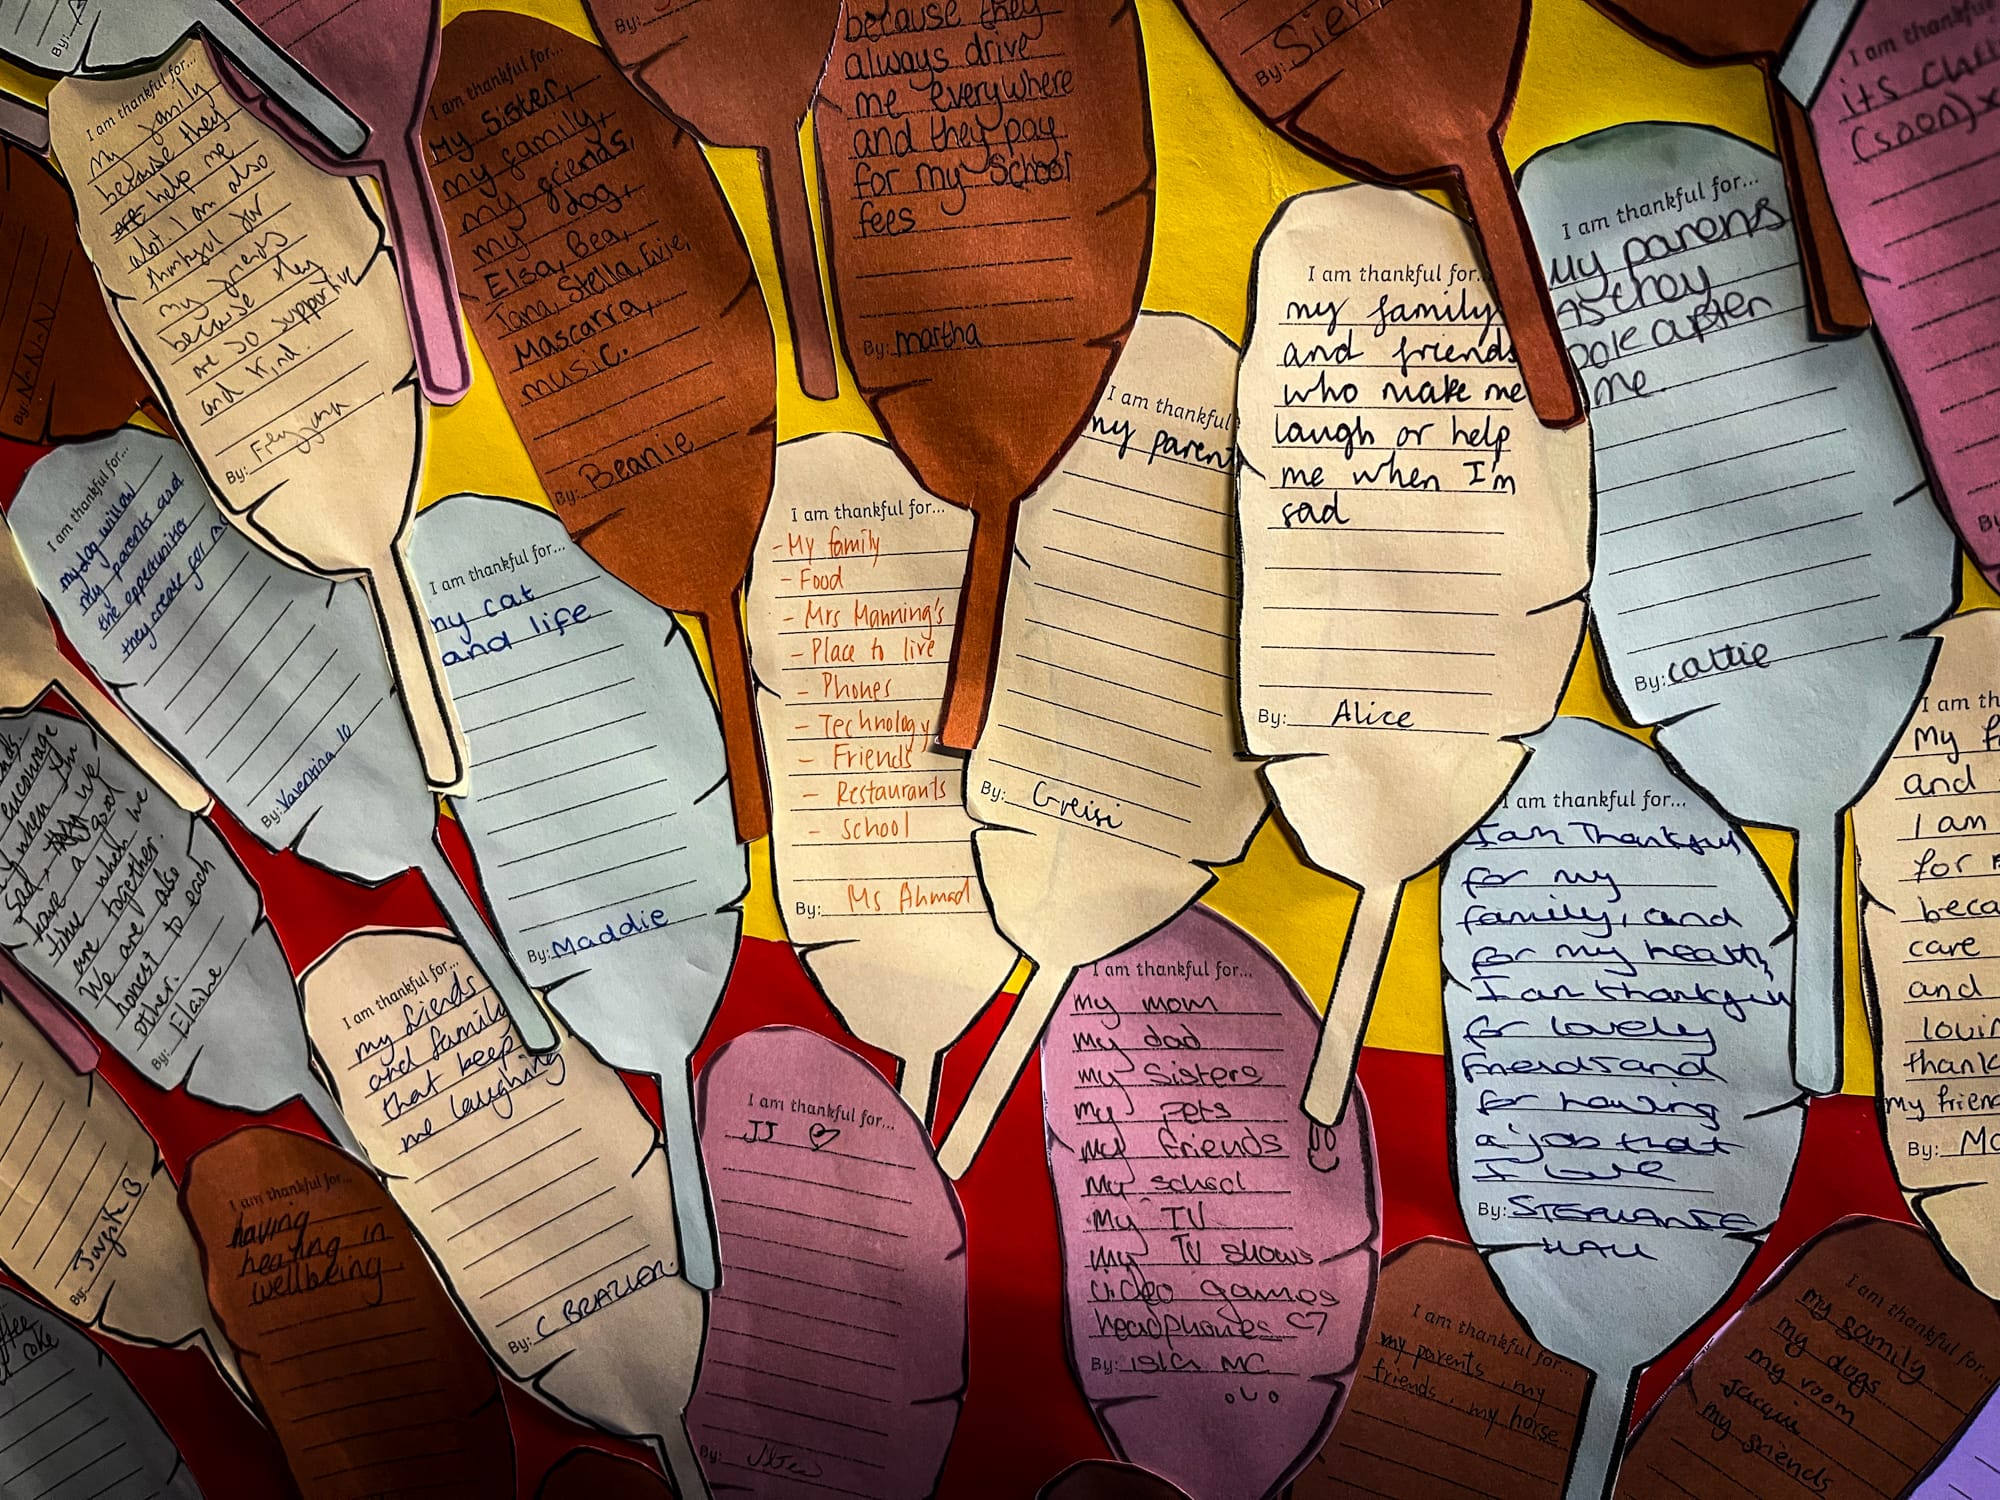 By:
I am thankful for...
My family
because they
help me
alot. I am also
thankful for
my friends
because they
are so supportive
and kind.
By:
I am thankful for...
My sister,
my family,
my friends,
my dog,
Elsa, Bea,
Tana, Stella, Evie,
Mascarra,
music.
By: Beanie
By:
because they
always drive
me everywhere
and they pay
for my school
fees
By: martha
By:
I am thankful for...
my family
and friends
who make me
laugh or help
me when I'm
sad
By: Alice
I am thankful for...
My parens
As they
me
By: Cattie
I am thankful
its
(soon)
By:
By: N-N-N
I am thankful for...
my dog willow
my parents and
the opportunities
they create for me
By: Valentina 10
I am thankful for...
my cat
and life
By: Maddie
I am thankful for...
- My family
- Food
- Mrs Manning's
- Place to live
- Phones
- Technology
- Friends
- Restaurants
- School
By: Ms Ahmad
I am thankful
my parent
By: Greisi
encourage
when
sad,
have a good
time when we
are together.
We are also
honest to each
other.
By: Elaine
I am thankful for...
my friends
and family
that keep
me laughing
By: C BRAZIER.
I am thankful for...
JJ ♡
By:
I am thankful for...
My mom
My dad
My sisters
My pets
My friends
My school
My TV
My TV shows
video games
headphones
By: Isla MC
am thankful for...
I am Thankful
for my
family, and
for my health,
I am thankful
for lovely
friends and
for having
a job that
I love
By: STEPHANIE
HALL
I am th
My f
and
I am
for
beca
care
and
lovin
thank
my frien
By: Mc
By:
I am thankful for...
having
heating in
wellbeing
coke
I am thankful for...
my parents, my
friends, my horse
I am thankful for...
my family
my dogs
my room
my friends